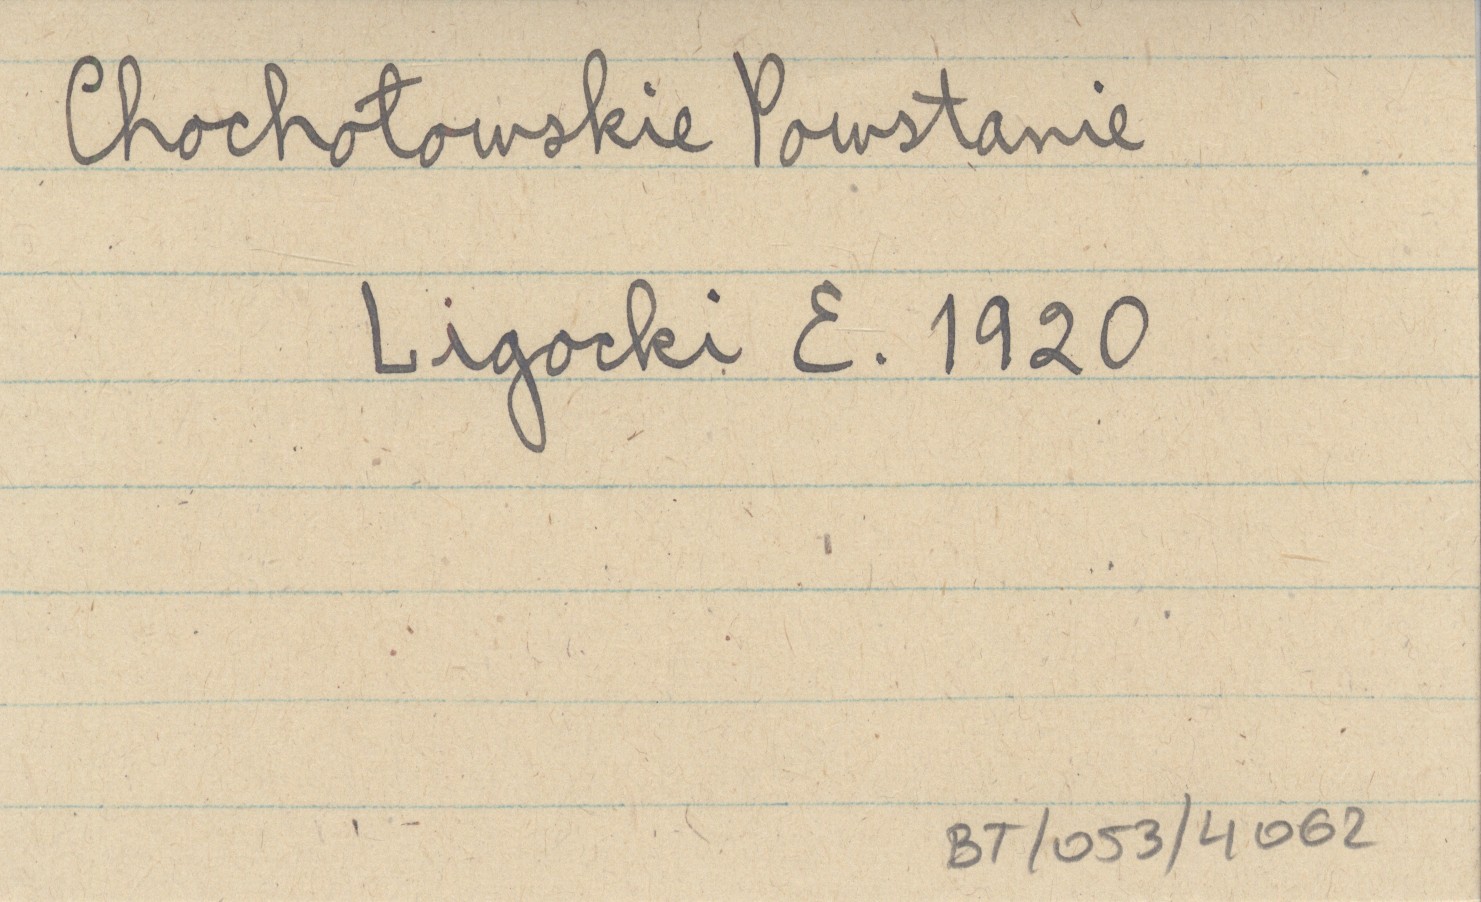 Chochołowskie Powstanie
Ligocki E. 1920
BT/053/4062